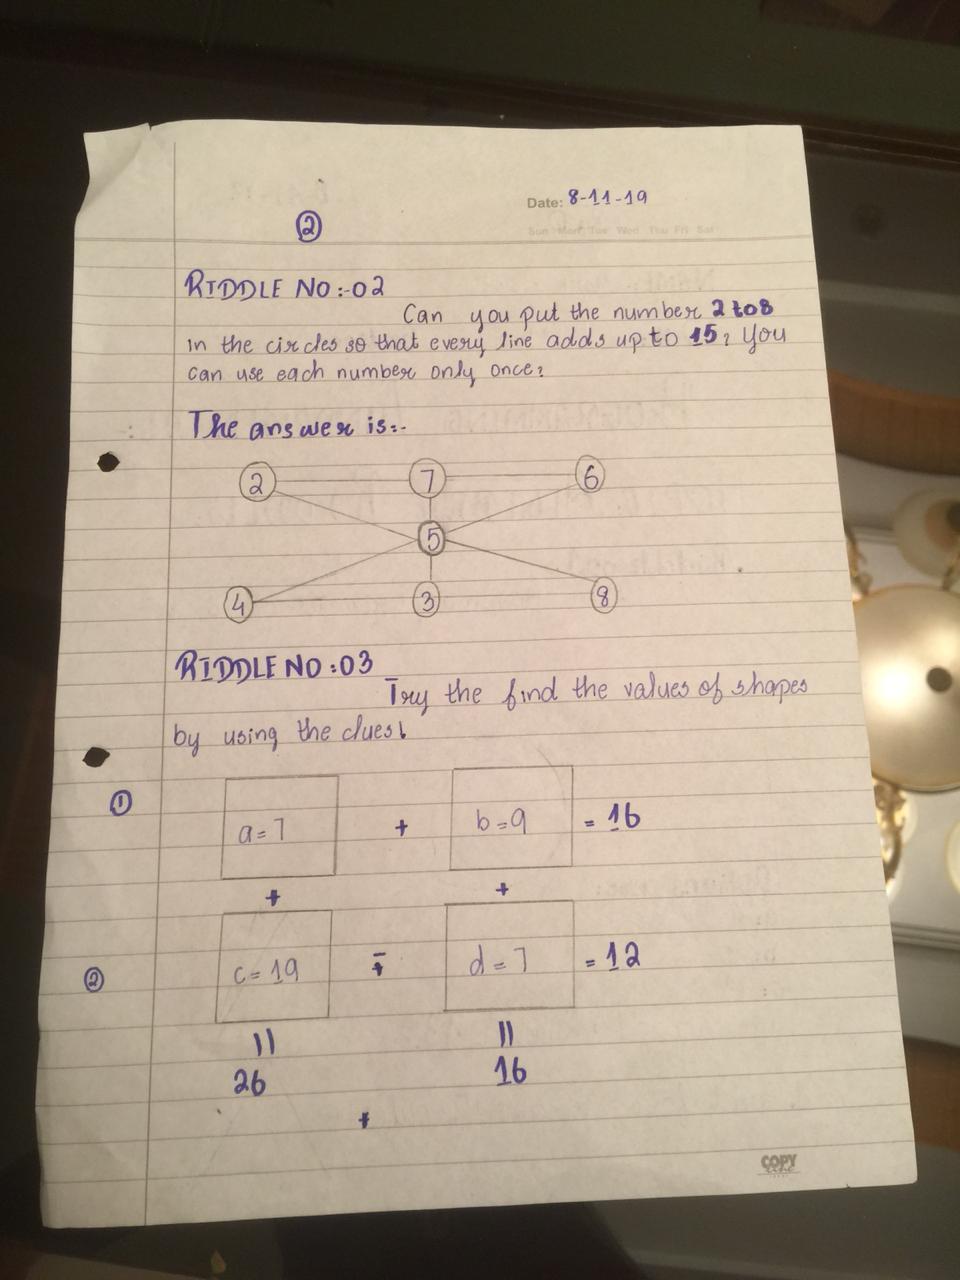 Date: 8-11-19
2
Sun Mon Tue Wed Thu Fri Sat
RIDDLE NO:-02
Can you put the number 2 to 8
in the circles so that every line adds up to 15? You
can use each number only once?
The answer is:-
2 7 6
5
4 3 8
RIDDLE NO:03
Try the find the values of shapes
by using the clues!
1 a=7 + b=9 = 16
+ +
2 c=19 - d=7 = 12
|| ||
26 16
+
COPY